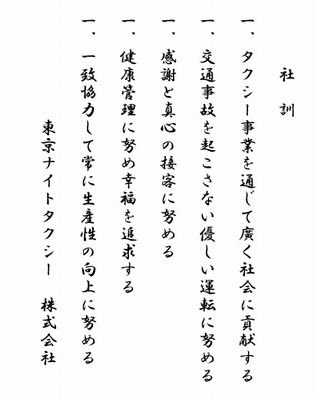 社訓
一、タクシー事業を通じて廣く社会に貢献する
一、交通事故を起こさない優しい運転に努める
一、感謝と真心の接客に努める
一、健康管理に努め幸福を追求する
一、一致協力して常に生産性の向上に努める
東京ナイトタクシー 株式会社